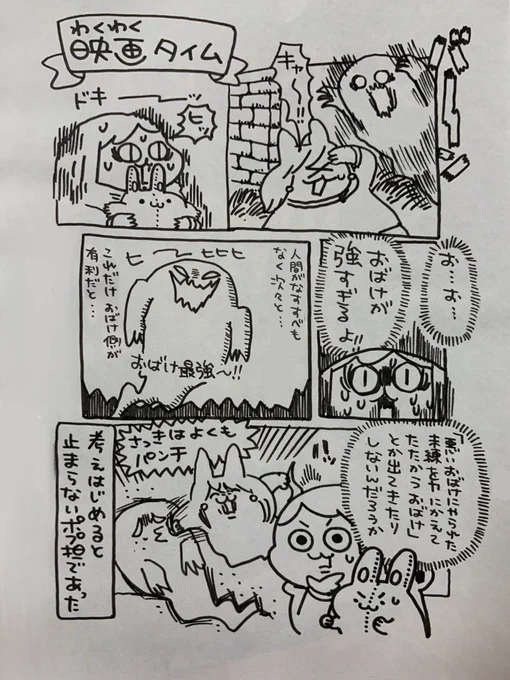 わくわく
映画タイム
キャー!!
ドキーーッ
ヒッ
お…お…
おばけが
強すぎるよ!!
人間がなすすべも
なく次々と…
ヒーーヒヒヒ
おばけ最強〜!!
これだけおばけ側が
有利だと…
悪いおばけにやられた
未練を力にかえて
たたかうおばけ」
とか出てきたり
しないんだろうか
さっきはよくも
パンチ
考えはじめると
止まらないポプ担であった